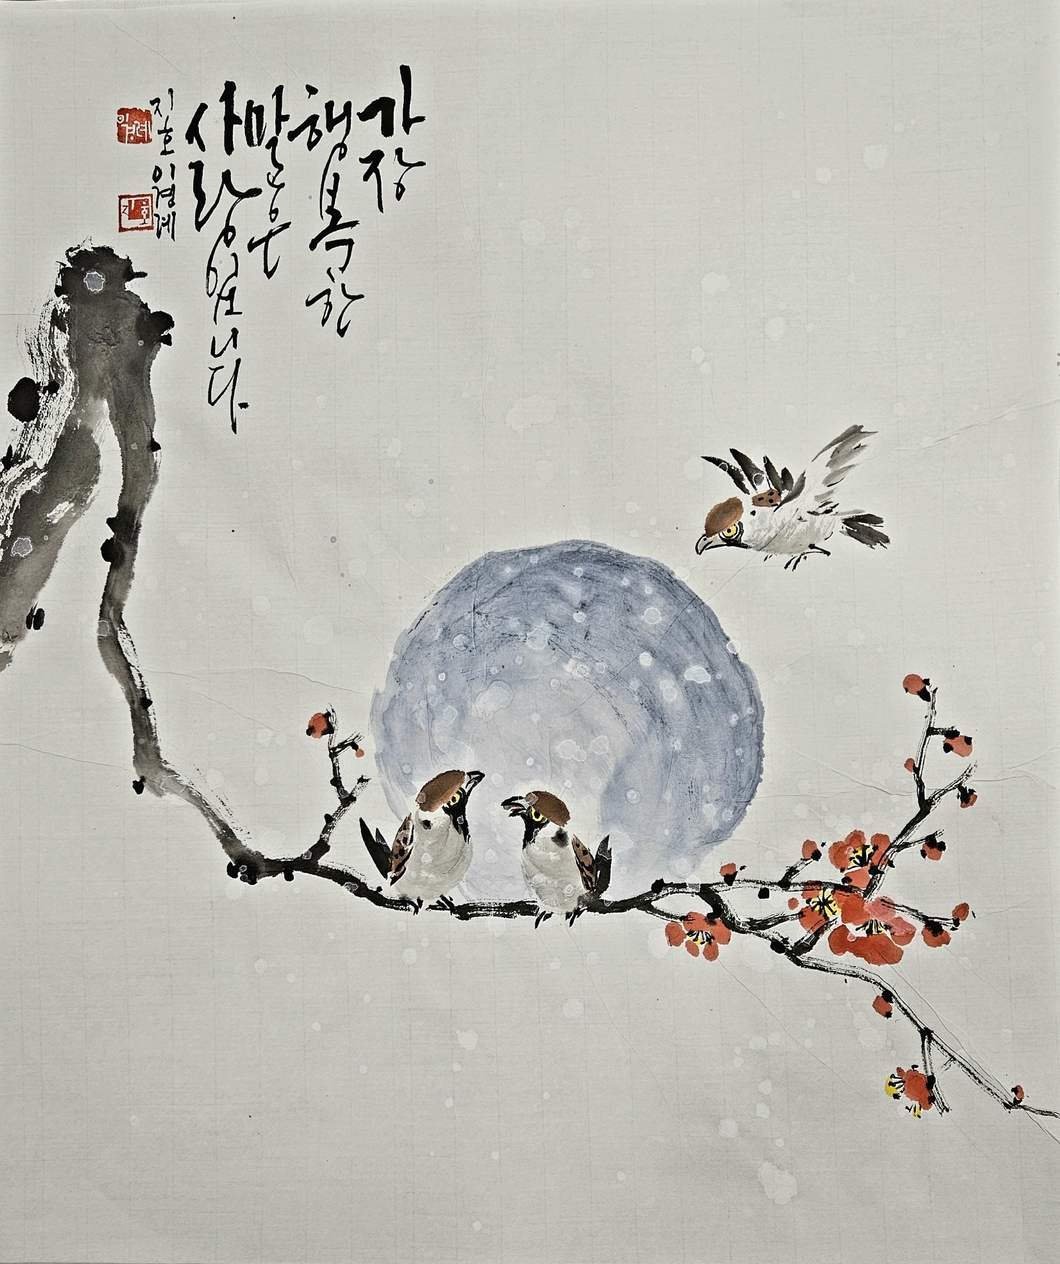 가장
행복한
말은
사랑입니다
지호 이경례
이경례
지호